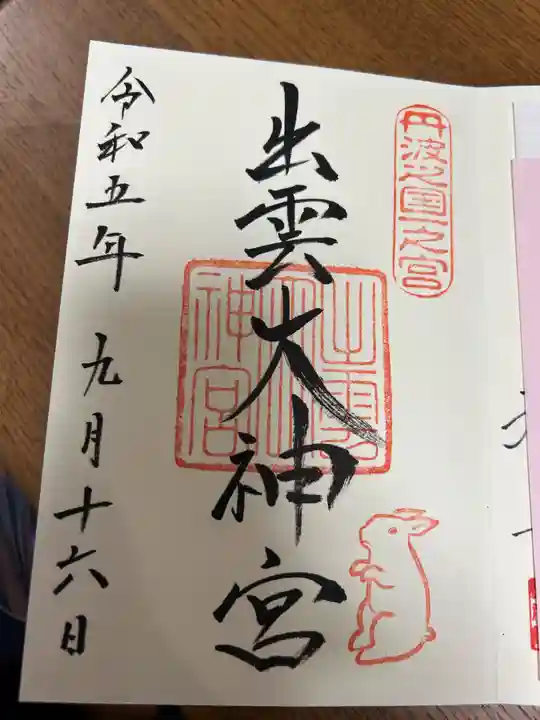 丹波國一之宮
出雲大神宮
出雲大神宮
令和五年 九月十六日